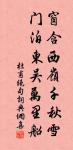 窗含西嶺千秋雪
門泊東吳萬里船
杜甫絕句詞典網集